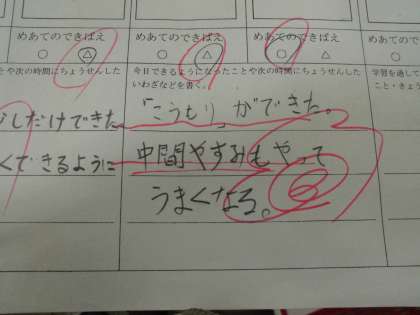 めあてのできばえ
めあてのできばえ
めあてのできばえ
めあてのできばえ
○ △
○ △
○ △
○
とや次の時間にちょうせんした
今日できるようになったことや次の時間にちょうせんした
いわざなどを書く。
学習を通して
こと・きょう
しだけできた
くできるように
「こうもり」ができた。
中間やすみもやって
うまくなる。